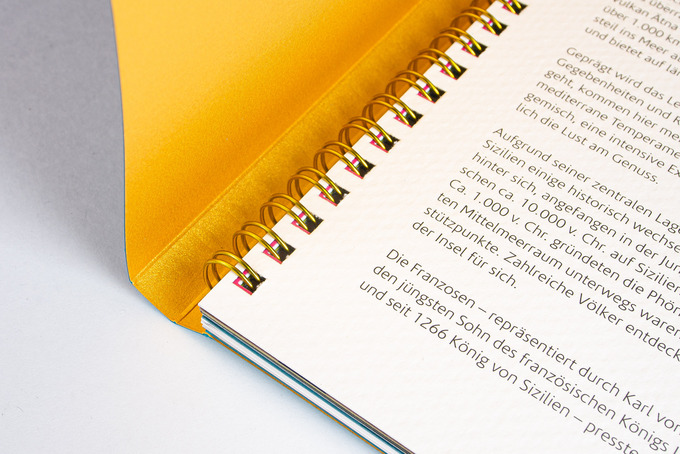 über
Vulkan Ätna
über 1.000 km
steil ins Meer a
und bietet auf lan
Geprägt wird das Le
Gegebenheiten und R
geht, kommen hier me
mediterrane Temperame
gemisch, eine intensive Ex
lich die Lust am Genuss.
Aufgrund seiner zentralen Lage
Sizilien einige historisch wechse
hinter sich, angefangen in der Jun
schen ca. 10.000 v. Chr. auf Sizilien
Ca. 1.000 v. Chr. gründeten die Phön
ten Mittelmeerraum unterwegs waren
stützpunkte. Zahlreiche Völker entdeck
der Insel für sich.
Die Franzosen – repräsentiert durch Karl von
den jüngsten Sohn des französischen Königs
und seit 1266 König von Sizilien – presste